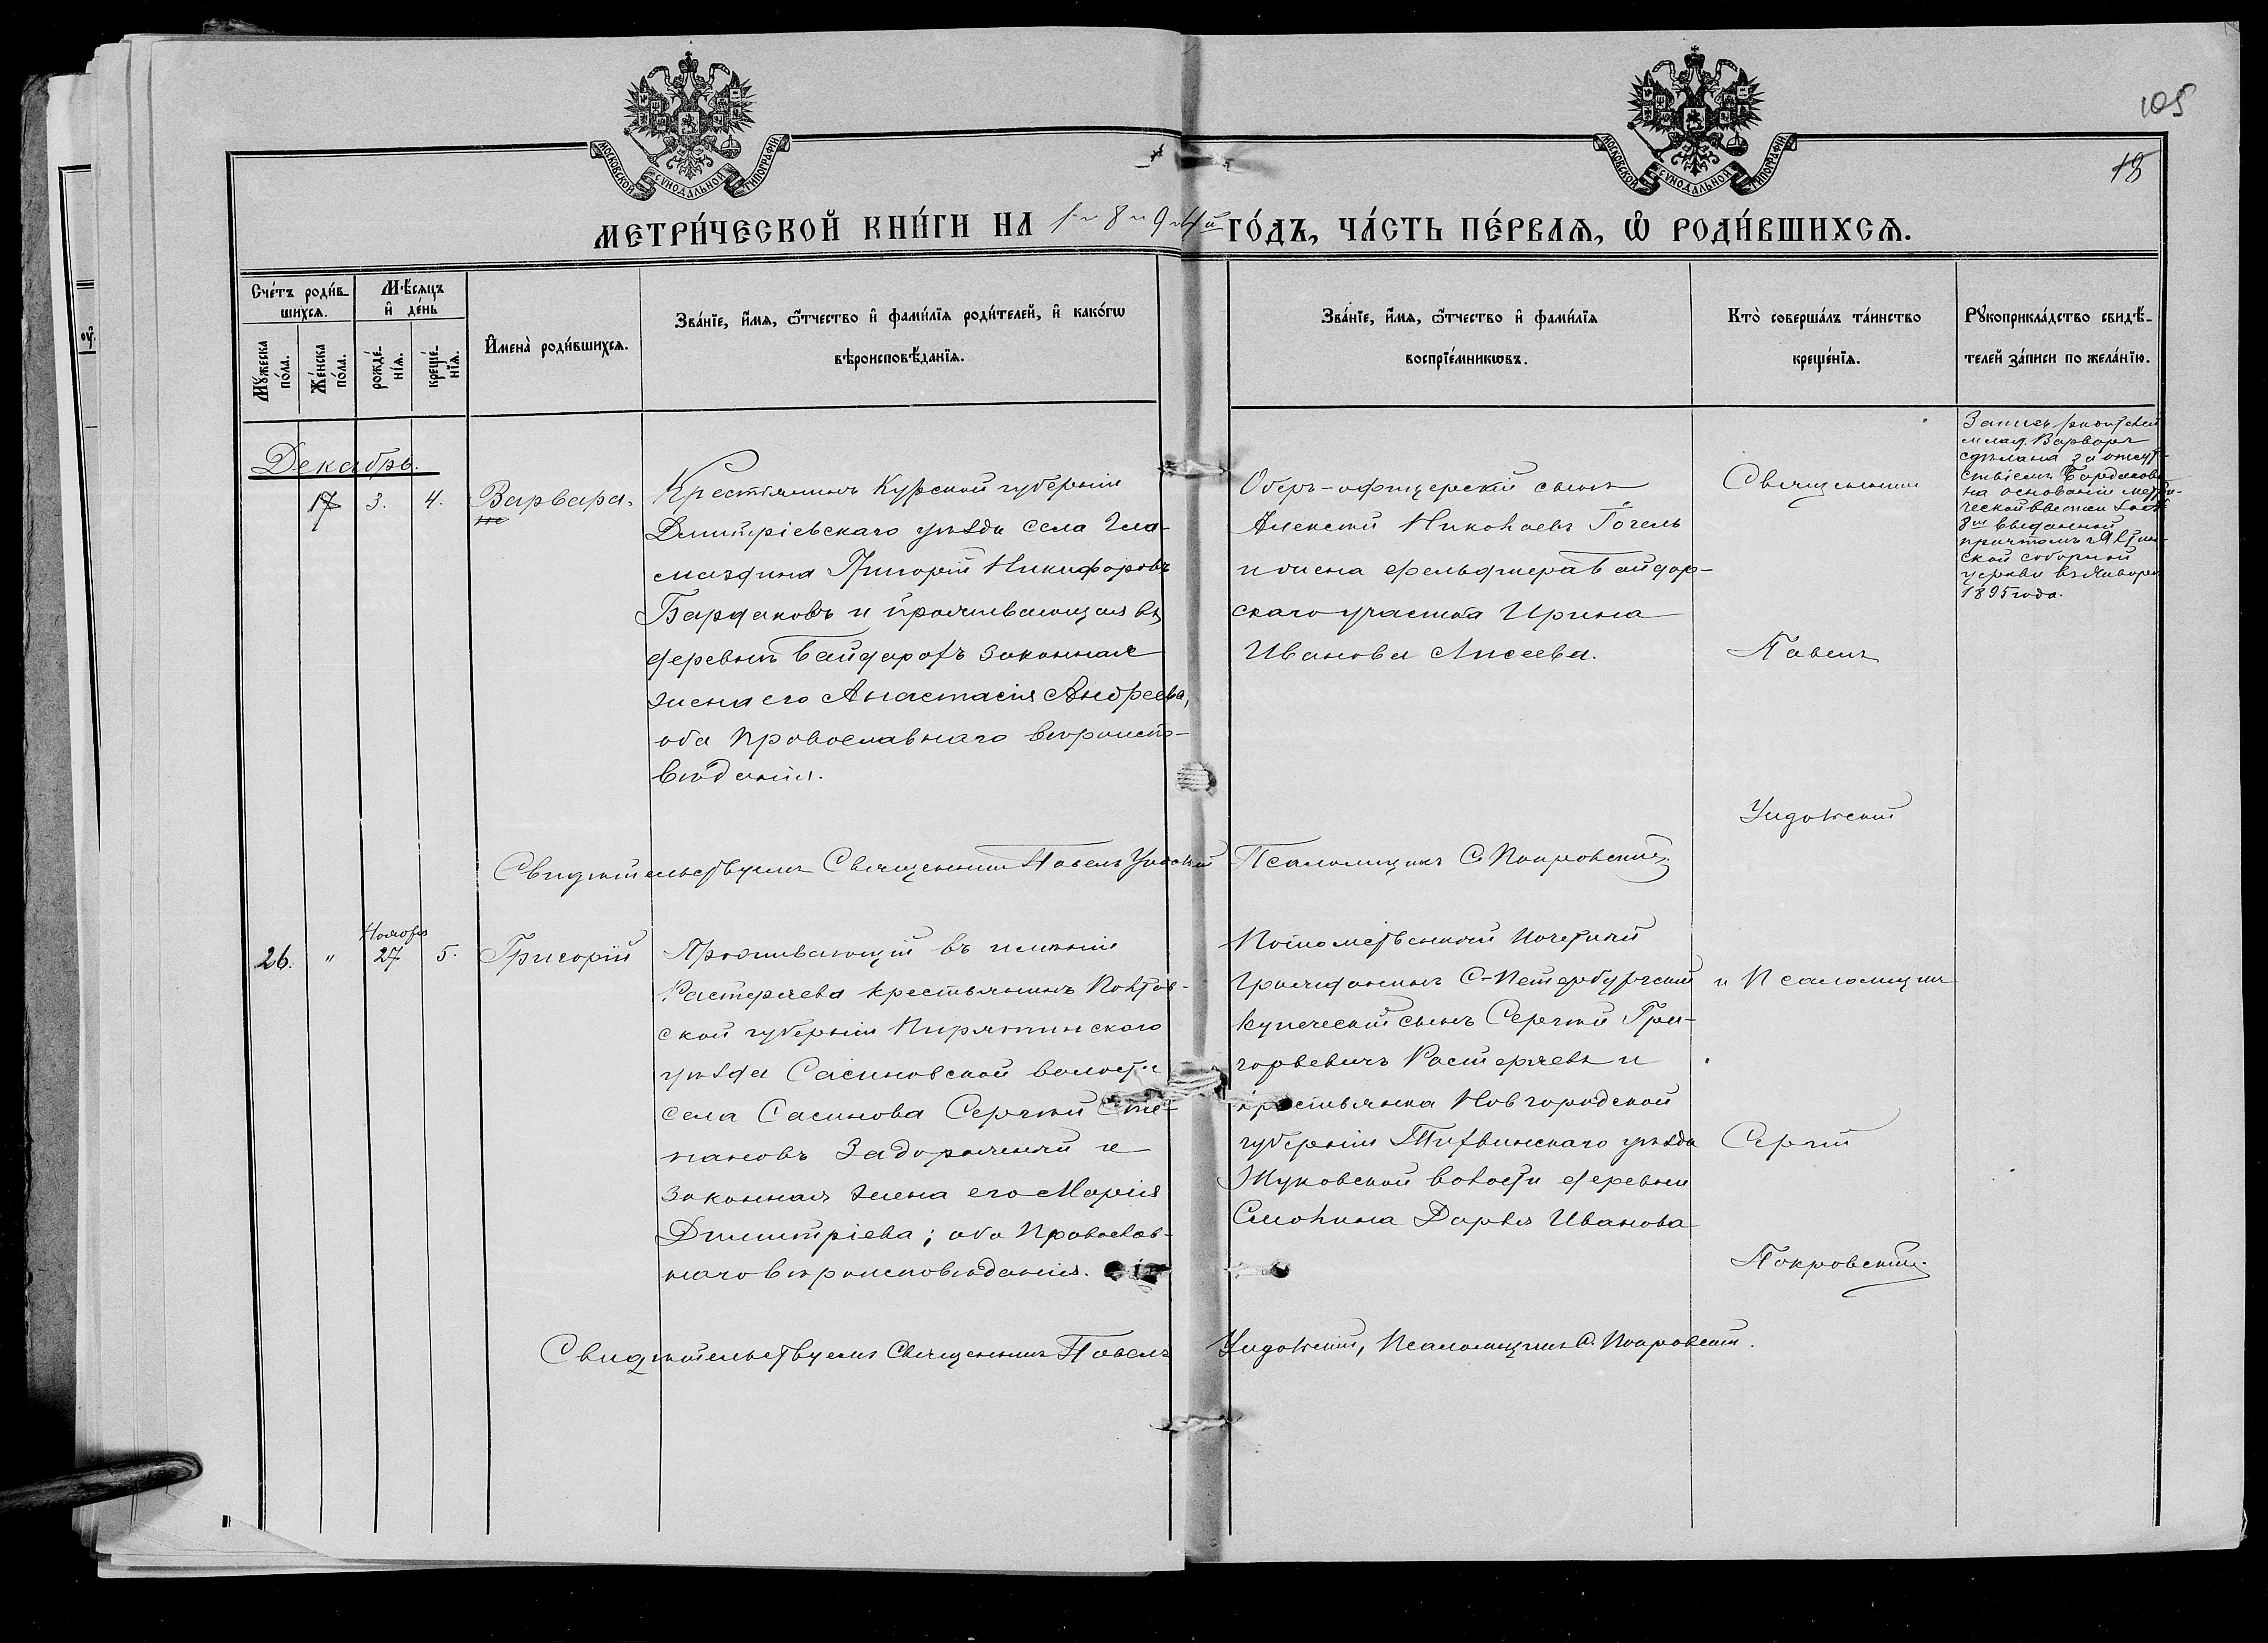 105
18
МОСКОВСКОЙ СУНОДАЛЬНОЙ ТИПОГРАФІИ
МОСКОВСКОЙ СУНОДАЛЬНОЙ ТИПОГРАФІИ
МЕТРИ́ЧЕСКОЙ КНИ́ГИ НА 1894й ГО́ДЪ, ЧА́СТЬ ПЕ́РВАѦ, Ѡ҆ РОДИ́ВШИХСѦ.
Сче́тъ роди́вшихсѧ.
Мꙋ́жеска по́ла.
Же́нска по́ла.
Мѣ́сѧцъ и҆ де́нь
рожде́нїѧ.
креще́нїѧ.
И҆мена̀ роди́вшихсѧ.
Зва́нїе, и҆́мѧ, ѻ҆́тчество и҆ фами́лїѧ роди́телей, и҆ како́гѡ
вѣроисповѣ́данїѧ.
Зва́нїе, и҆́мѧ, ѻ҆́тчество и҆ фами́лїѧ
воспрїе́мникѡвъ.
Кто̀ соверша́лъ та́инство
креще́нїѧ.
Рꙋкоприкла́дство свидѣ́-
телей за́писи по жела́нїю.
Декабрь.
17 3. 4. Варвара.
Крестьянинъ Курской губерніи
Дмитріевскаго уѣзда села
Григорій Никифоровъ
Бардаковъ и проживающая въ
деревнѣ Байдарахъ законная
жена его Анастасія Андреева,
оба православнаго вѣроиспо-
вѣданія.
Оберъ-офицерскій сынъ
Алексѣй Николаевъ Гогель
и жена фельдшера Байдар-
скаго участка Ирина
Иванова Лисеева.
Священникъ
Павелъ
Запись
млад. Варвары
сдѣлана за отсут-
ствіемъ Бардаковой
на основаніи метри-
ческой
выданной
причтомъ Ялтин-
ской соборной
церкви въ Январѣ
1895 года.
Свидѣтельствуемъ Священникъ Павелъ Псаломщикъ С. Покровскій.
26. " Ноября 27 5. Григорій
Проживающій въ имѣніи
Растеряева крестьянинъ Полтав-
ской губерніи Пирятинскаго
уѣзда Сасиновской волости
села Сасинова Сергѣй Сте-
пановъ Задорожный и
законная жена его Марія
Димитріева; оба православ-
наго вѣроисповѣданія.
Потомственный почетный
гражданинъ С-Петербургскій
купеческій сынъ Сергѣй Гри-
горьевичъ Растеряевъ и
крестьянка Новгородской
губерніи Тихвинскаго уѣзда
Жуковской волости деревни
Смолина Дарья Иванова
и Псаломщикъ
Сергій
Покровскій.
Свидѣтельствуемъ Священникъ Павелъ Псаломщикъ С. Покровскій.